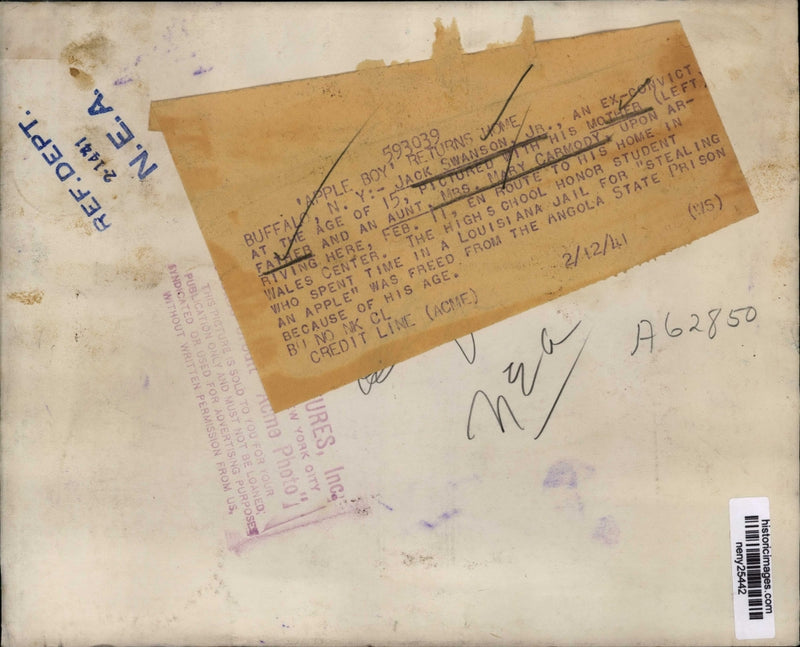 REF. DEPT.
2-14-41
N.E.A.
593039
'APPLE BOY' RETURNS HOME
BUFFALO, N.Y:- JACK SWANSON, JR., AN EX-CONVICT
AT THE AGE OF 15, PICTURED WITH HIS MOTHER (LEFT)
FATHER AND AN AUNT, MRS. MARY CARMODY, UPON AR-
RIVING HERE, FEB. 11, EN ROUTE TO HIS HOME IN
WALES CENTER. THE HIGH SCHOOL HONOR STUDENT
WHO SPENT TIME IN A LOUISIANA JAIL FOR "STEALING
AN APPLE" WAS FREED FROM THE ANGOLA STATE PRISON
BECAUSE OF HIS AGE.
BU NO NK CL 2/12/41 (WS)
CREDIT LINE (ACME)
A62850
NEA
URES, Inc.
W YORK CITY
Acme Photo"
THIS PICTURE IS SOLD TO YOU FOR YOUR
PUBLICATION ONLY AND MUST NOT BE LOANED,
SYNDICATED OR USED FOR ADVERTISING PURPOSES
WITHOUT WRITTEN PERMISSION FROM US.
historicimages.com
neny25442